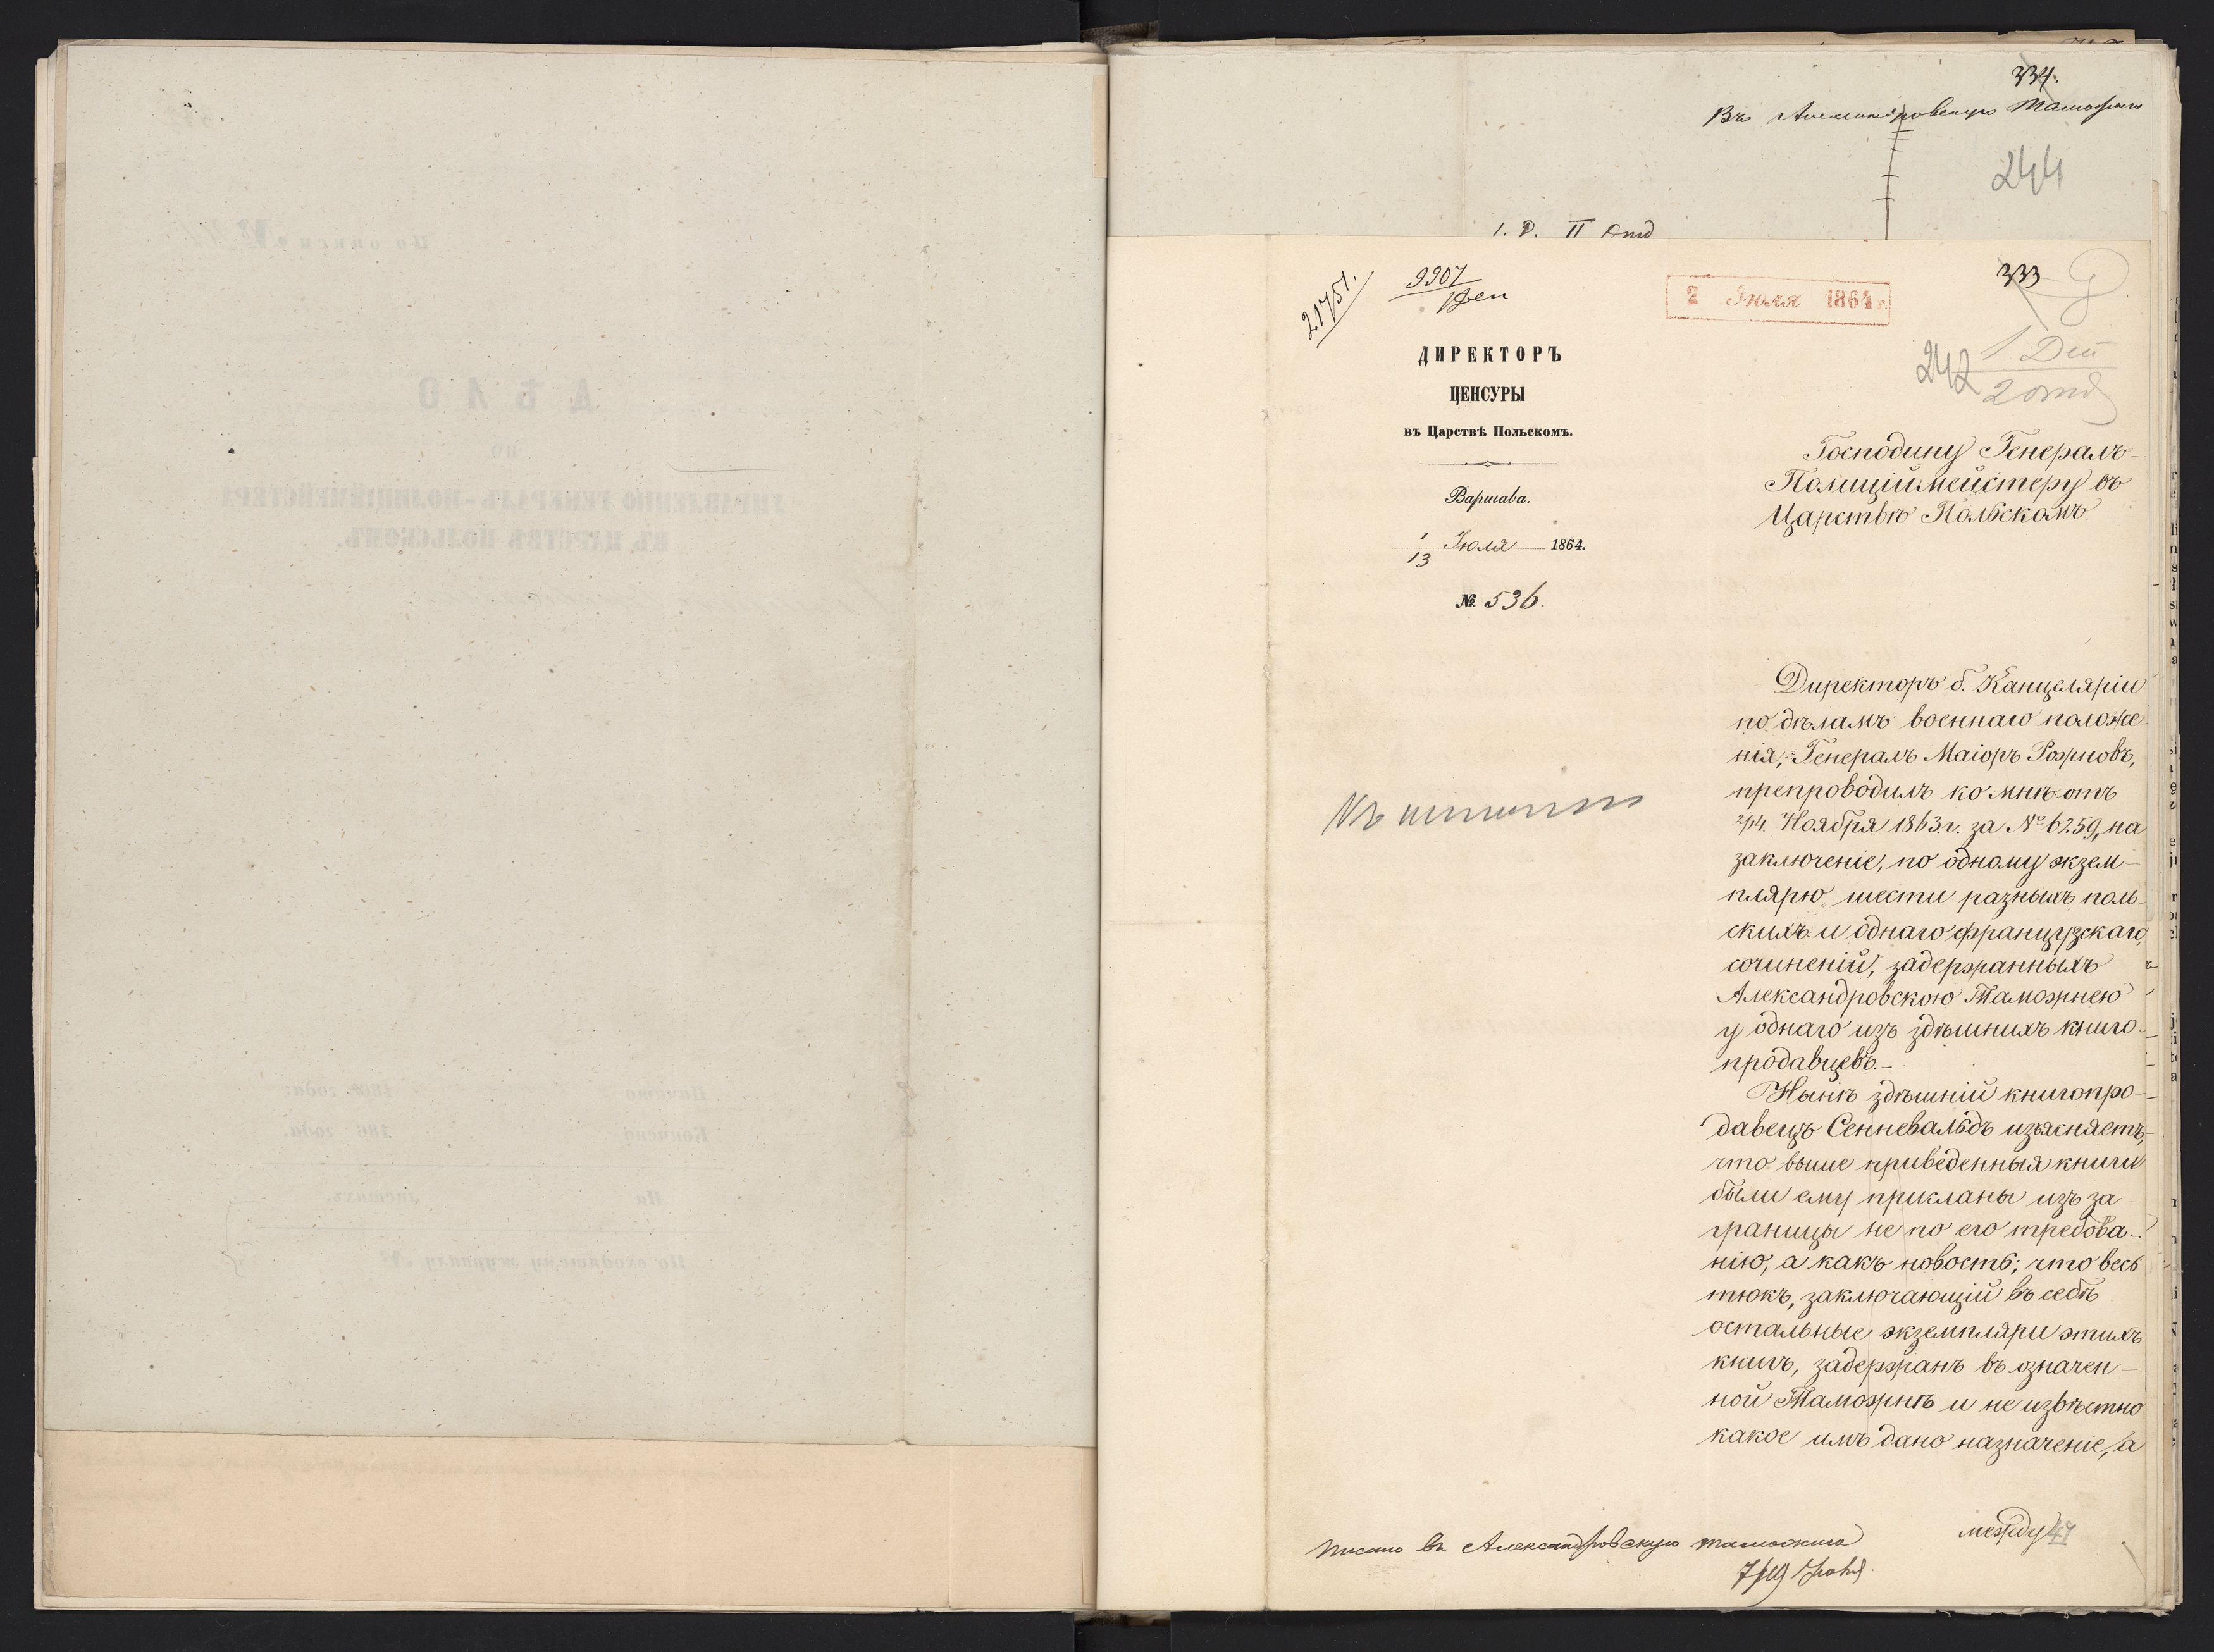 334.
Въ Александровскую Таможню
244
1. Д. II Отд
21751.
9907
Ден
2 Июля 1864 г.
333
1 Деп
242
2 отд
ДИРЕКТОРЪ
ЦЕНСУРЫ
въ Царствѣ Польскомъ.
Варшава.
1/13 Июля 1864.
№. 536.
Господину Генералъ-
Полиціймейстеру въ
Царствѣ Польскомъ
Директоръ б. Канцеляріи
по дѣламъ военнаго положе
нія, Генералъ Маіоръ Рожновъ,
препроводилъ ко мнѣ отъ
2/14 Ноября 1863 г. за № 6259, на
заключеніе, по одному экзем-
плярю шести разныхъ поль-
скихъ и однаго французскаго
сочиненій, задержанныхъ
Александровскою Таможнею
у однаго изъ здѣшнихъ книго-
продавцевъ.-
Нынѣ здѣшній книгопро-
давецъ Сенневальдъ изъясняетъ,
что выше приведенныя книги
были ему прикланы изъ за-
границы не по его требова-
нію, а какъ новость; что весь
тюкъ, заключающій въ себѣ
остальные экземпляри этихъ
книгъ, задержанъ въ означен-
ной Таможнѣ и не извѣстно
какое имъ дано назначеніе, а
между
47
Писано въ Александровскую таможню
7/19 Июля